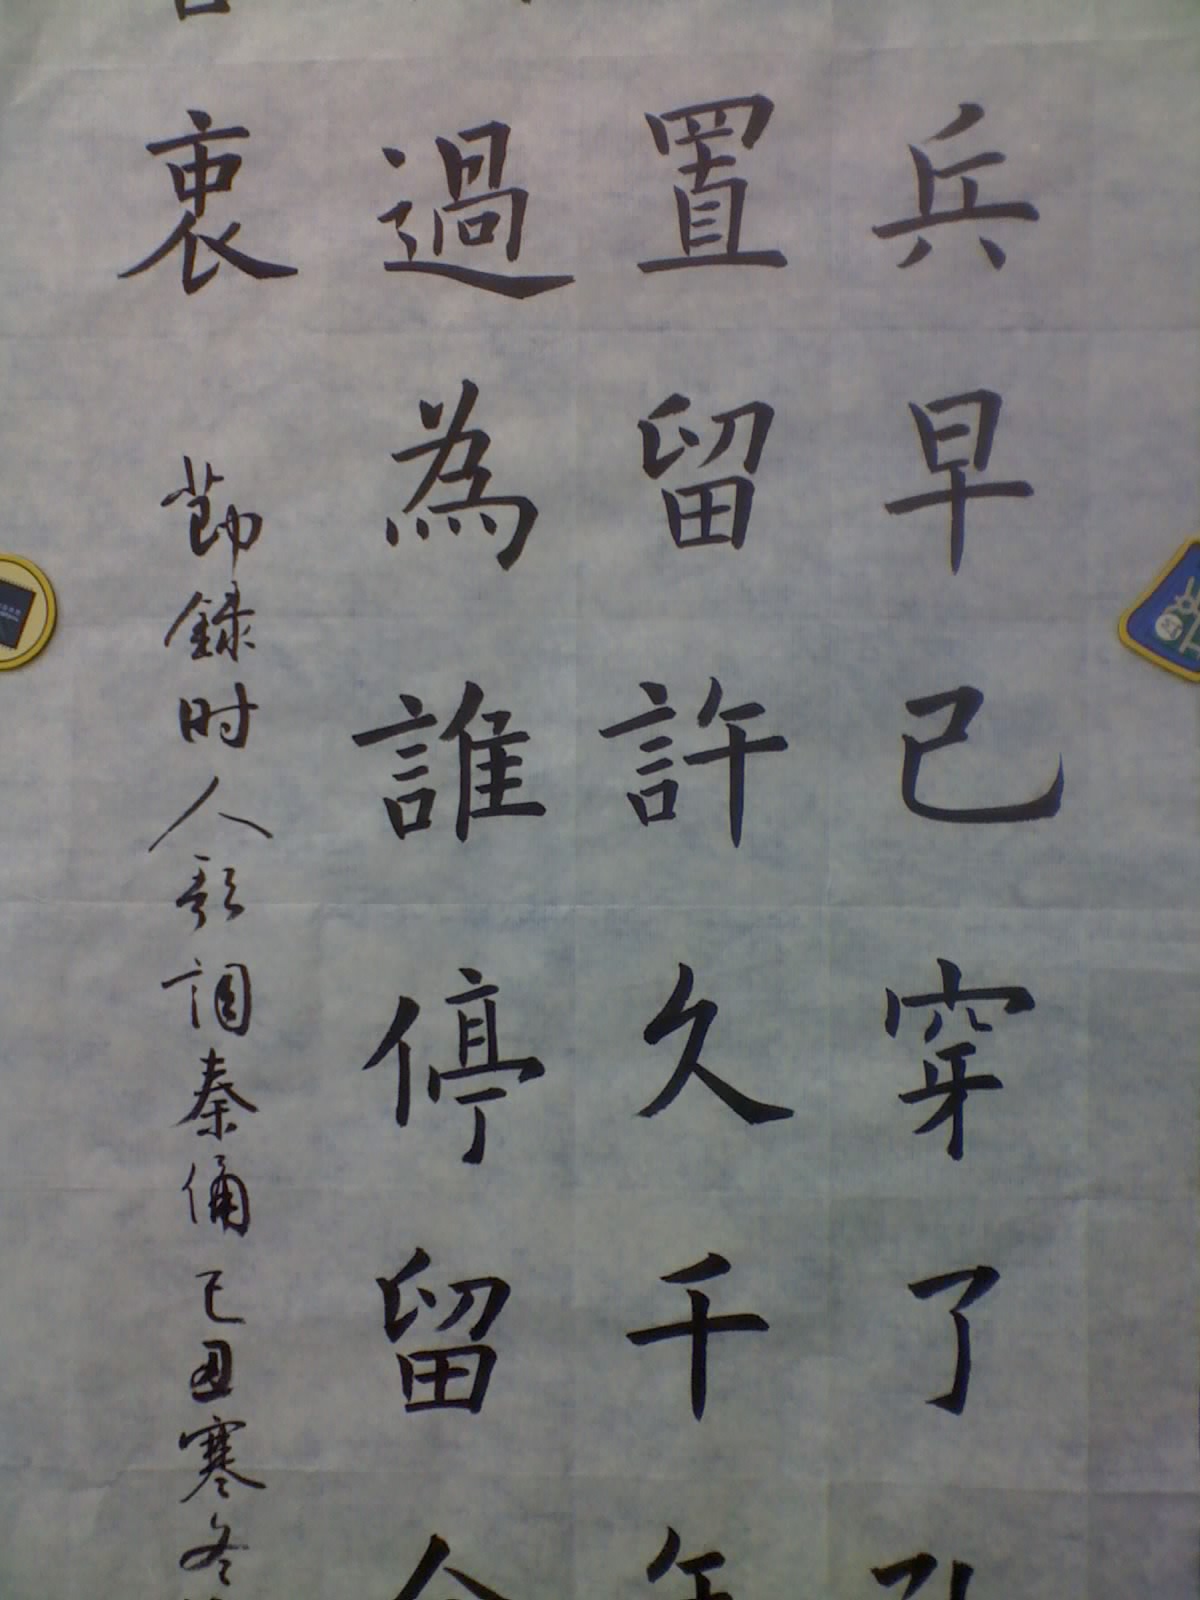 兵早已穿了
置留許久千年
過為誰停留
衷
節録时人歌詞秦俑己丑寒冬